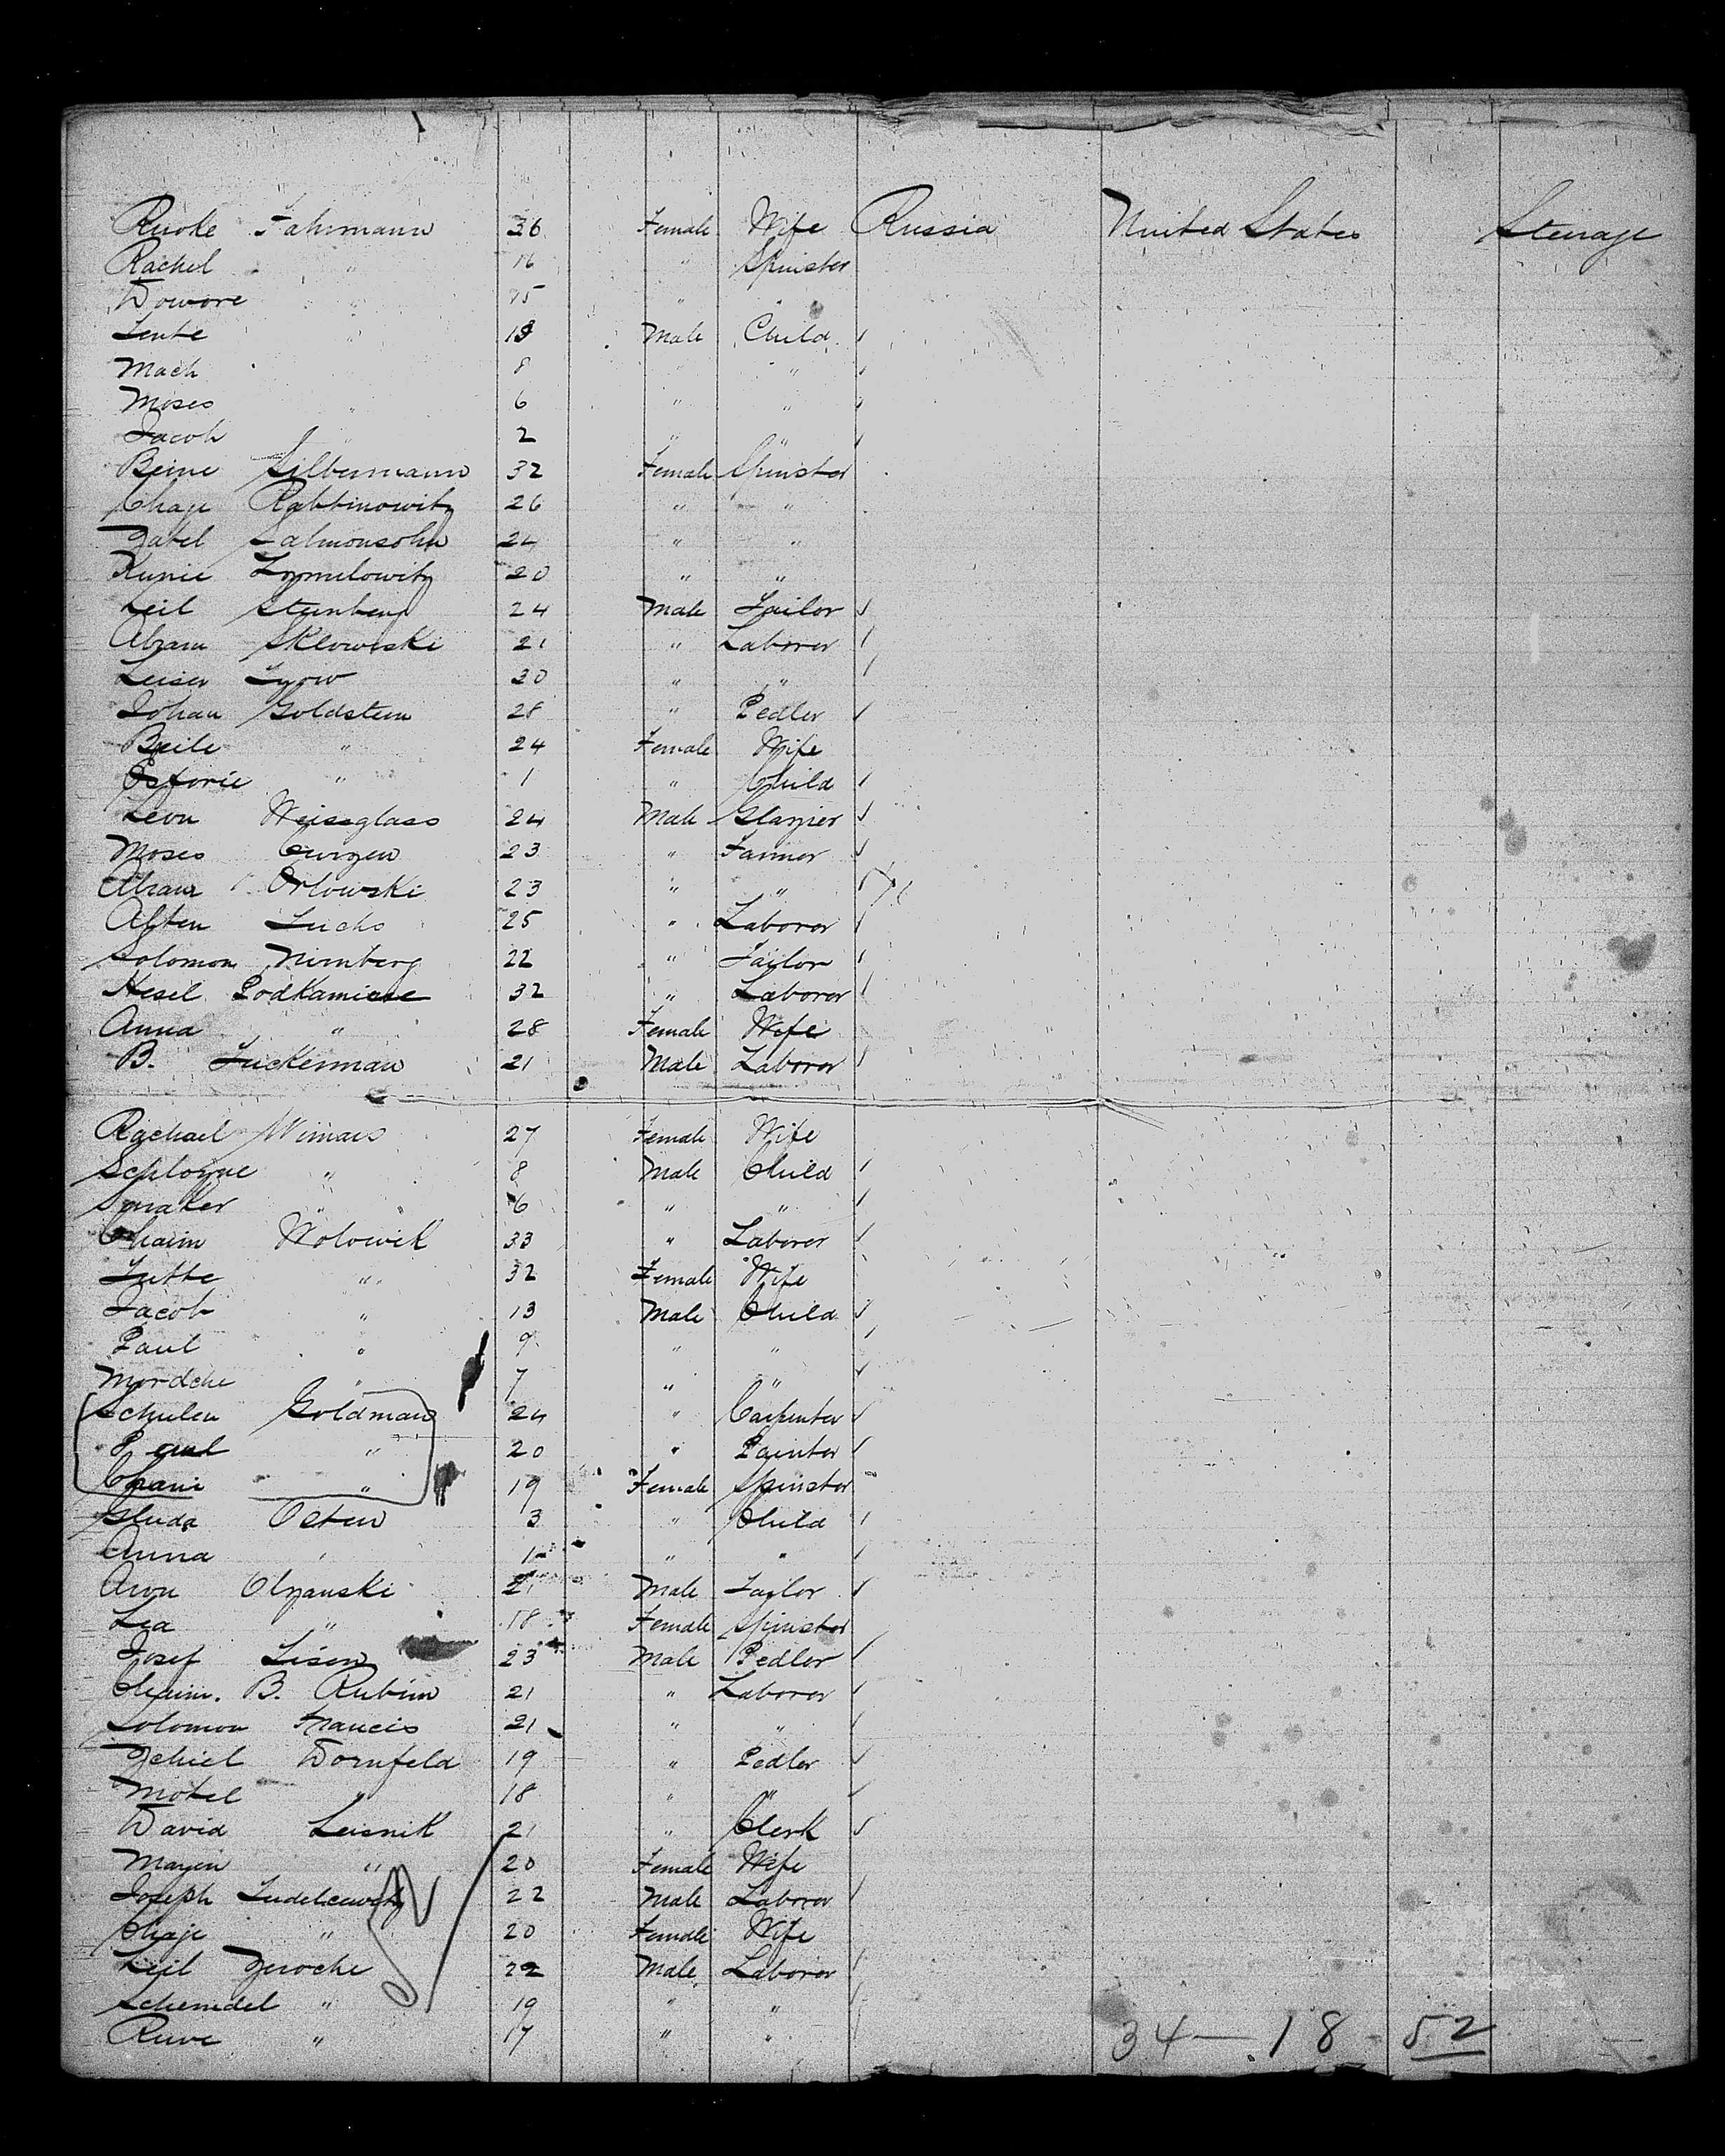 Ruoke Fahrmann 36 Female Wife Russia United States Steerage
Rachel " 16 " Spinster
Dowore " 15 " "
Lente " 13 Male Child
Mach 8 " "
Moses " 6 " "
Jacob " 2 " "
Beine Silbermann 32 Female Spinster
Chaje Rabbinowitz 26 " "
Salmonsohn 24 " "
Kunie 20 " "
Leil Steinberg 24 Male Tailor
Abram Sklowiski 21 " Laborer
Leiser Lyow 30 " "
Johan Goldstein 28 " Pedler
Beile " 24 Female Wife
Esforie " 1 " Child
Leon Weissglass 24 Male Glazier
Moses 23 " Farmer
Abram Orlowski 23 " "
Alften Luchs 25 " Laborer
Solomon Nirnberg 22 " Tailor
Hesel Podkamiese 32 " Laborer
Anna " 28 Female Wife
B. Zuckerman 21 Male Laborer
Rachael 27 Female Wife
Schloyne " 8 Male Child
Smaker " 6 " "
Chaim Wolowik 33 " Laborer
Jutte " 32 Female Wife
Jacob " 13 Male Child
Paul " 9 " "
Mordche " 7 " "
Schulen Goldman 24 " Carpenter
Paul " 20 " Painter
Chani " 19 Female Spinster
Gluda Osten 3 " Child
Anna " 1 " "
Aron Olzanski 21 Male Tailor
Lea " 18 Female Spinster
Josef Lisen 23 Male Pedler
Chaim. B. Rubin 21 " Laborer
Solomon Francis 21 " "
Jehiel Dornfeld 19 " Pedler
Motel " 18 " "
David Lesnik 21 " Clerk
Mayin " 20 Female Wife
Joseph 22 Male Laborer
Chaje " 20 Female Wife
Leil 22 Male Laborer
Schemdel " 19 " "
Ruve " 17 " "
34 — 18 - 52